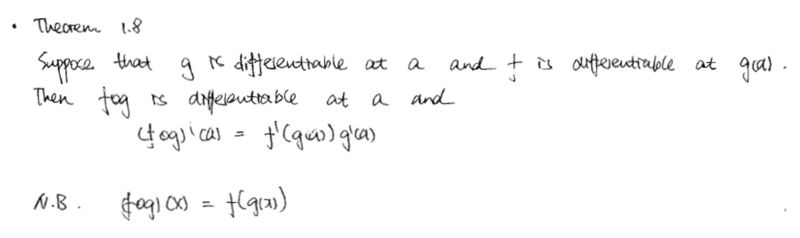 • Theorem 1.8
Suppose that g is differentiable at a and f is differentiable at g(a).
Then f∘g is differentiable at a and
(f∘g)'(a) = f'(g(a)) g'(a)
N.B. (f∘g)(x) = f(g(x))